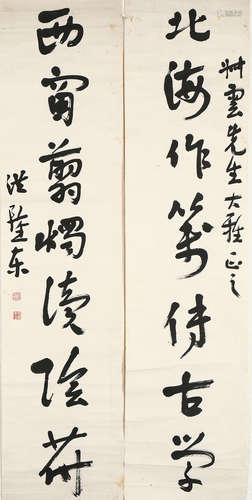 艸雲先生大雅正之
北海作箋傳古学
西窗翦燭讀陰
洪陸东